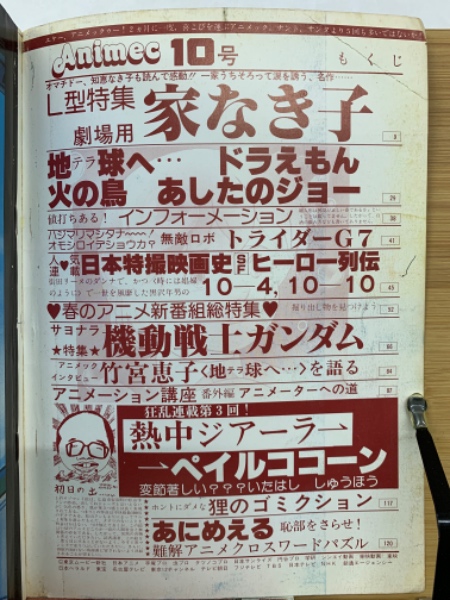 Animec 10号 もくじ
オマチドー、知恵なき子も読んで感動!! 一家うちそろって涙を誘う、名作……
L型特集
劇場用 家なき子 3
地テラ球へ… ドラえもん
火の鳥 あしたのジョー 29
値打ちある! インフォーメーション 38
ハジマリマシタナ〜〜!
オモシロイデショウカ? 無敵ロボ トライダーG7 41
人気連載 ♥ 日本特撮映画史 SF ヒーロー列伝
10—4, 10—10
♥春のアニメ新番組総特集♥
サヨナラ
★特集★ 機動戦士ガンダム
アニメック
インタビュー 竹宮恵子〈地テラ球へ…〉を語る
アニメーション講座 番外編 アニメーターへの道
狂乱連載第3回!
熱中ジアーラー
ーペイルココーン
変節著しい???いたはし しゅうほう
初日の出
ホントにダメな 狸のゴミクション 117
あにめえる 恥部をさらせ!
難解アニメクロスワードパズル 120